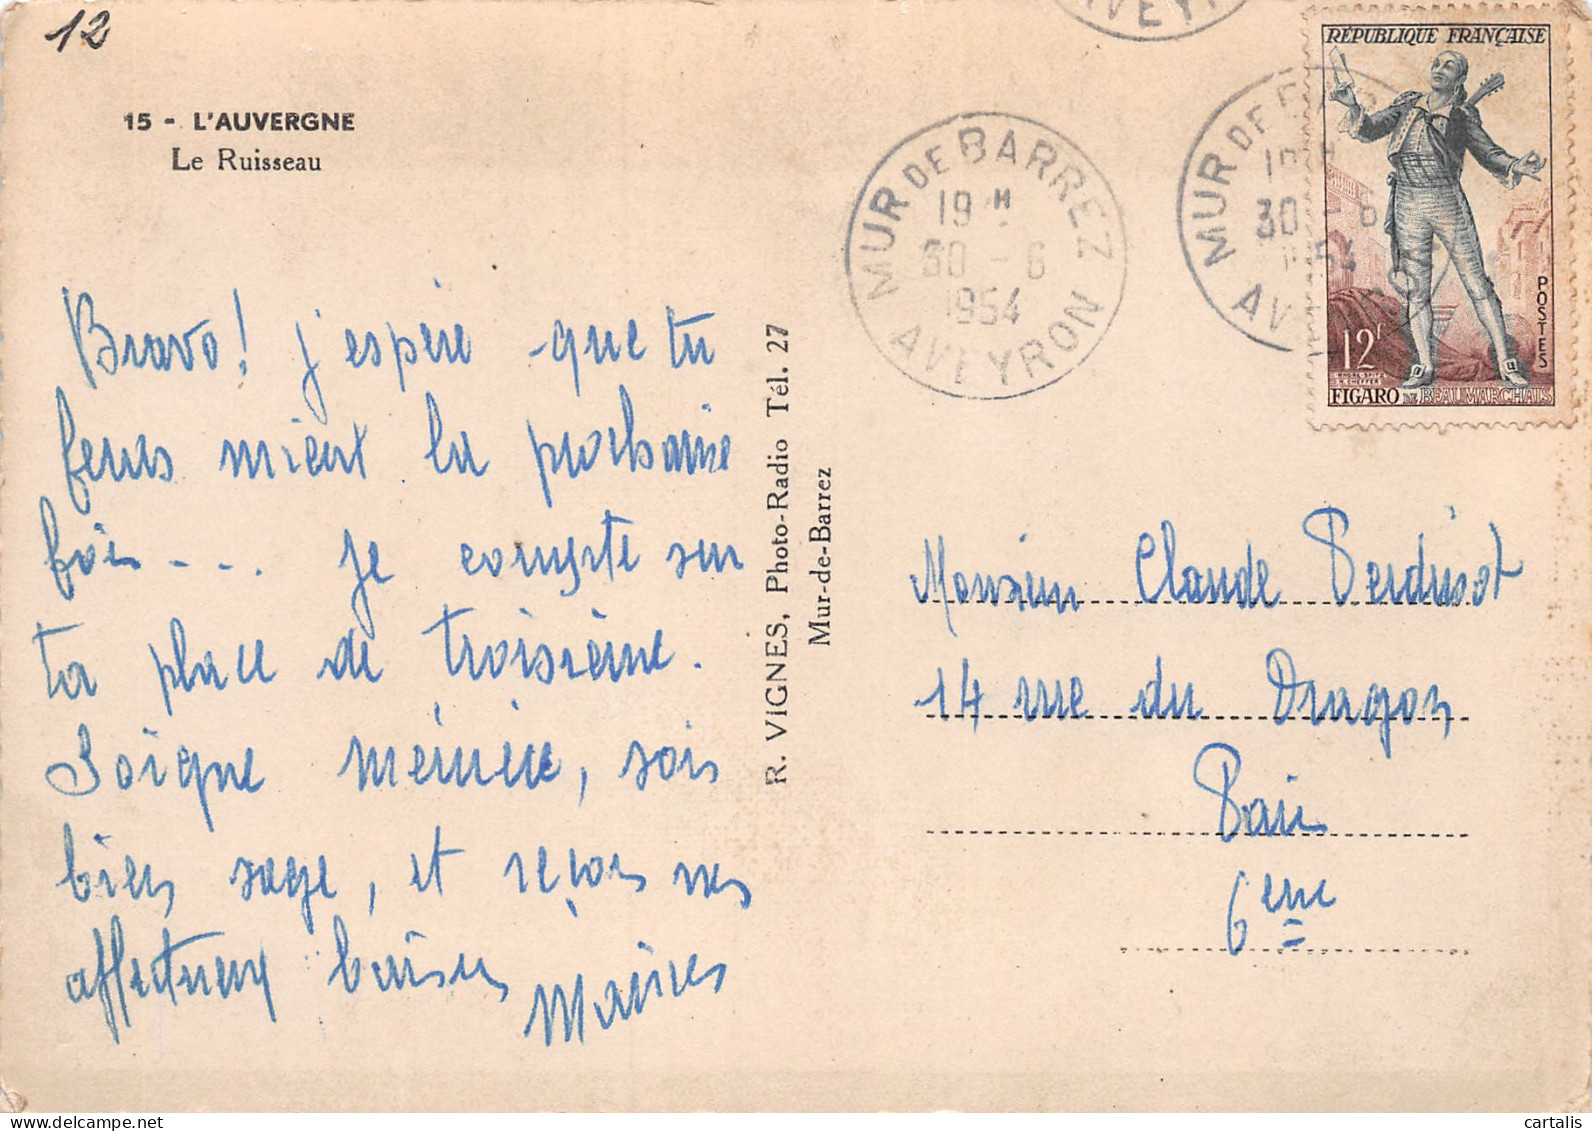 12
15 - L'AUVERGNE
Le Ruisseau
Bravo! j'espère que tu
feras mieux la prochaine
fois... Je compte sur
ta place de troisième.
Soigne mémère, sois
bien sage, et reçois mes
affectueux baisers
R. VIGNES, Photo-Radio Tél. 27
Mur-de-Barrez
AVEYRON
MUR DE BARREZ
19 H
30 - 6
1954
AVEYRON
MUR DE BAR
30 - 6
1954
AVEYRON
RÉPUBLIQUE FRANÇAISE
POSTES
12F
FIGARO DE BEAUMARCHAIS
Monsieur Claude Perdrisot
14 rue du Dragon
Paris
6eme
cartalis
www.delcampe.net